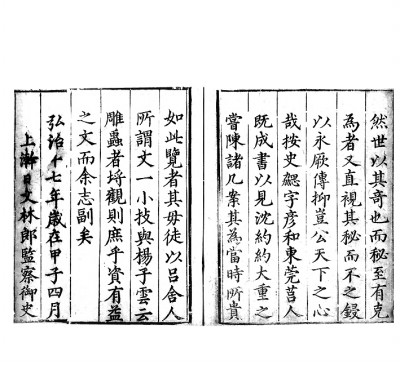 然世以其奇也而秘至有克
為者又直視其秘而不之鋟
以永厥傳抑豈公天下之心
哉按史勰字彥和東莞莒人
既成書以見沈約約大重之
嘗陳諸几案其為當時所貴
如此覽者其毋徒以呂舍人
所謂文一小技與楊子雲云
雕蟲者埒觀則庶乎資有益
之文而余志副矣
弘治十七年歲在甲子四月
上澣日文林郎監察御史